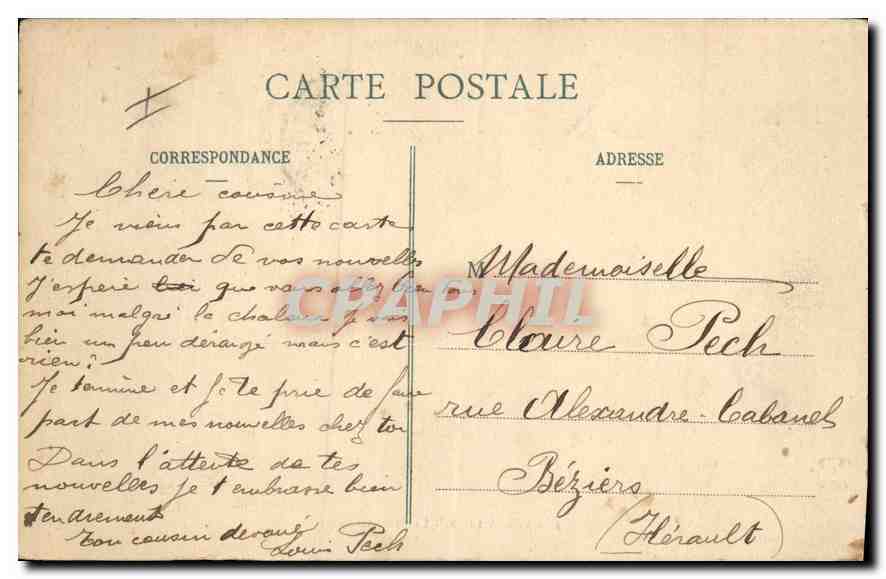 CARTE POSTALE
CORRESPONDANCE
ADRESSE
Chère cousine
Je viens par cette carte
te demander de vos nouvelles
J'espère que vous allez bien tous
moi malgré la chaleur je vais
bien un peu dérangé mais c'est
rien.
Je termine et je te prie de faire
part de mes nouvelles chez toi
Dans l'attente de tes
nouvelles je t'embrasse bien
tendrement
Ton cousin dévoué
Louis Pech
M Mademoiselle
Claire Pech
rue Alexandre-Cabanel
Béziers
(Hérault)
CPAPHIL